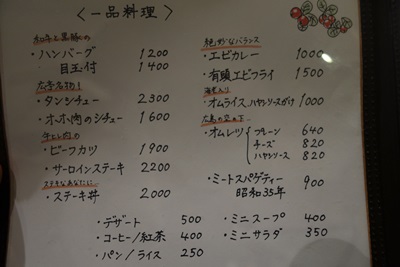 〈一品料理〉
和牛と黒豚の
・ハンバーグ 1200
目玉付 1400
・タンシチュー 2300
・オホ肉のシチュー 1600
・ビーフカツ 1900
・サーロインステキ 2200
ステキなあなたに
・ステキ丼 2000
絶妙なバランス
・エビカレー 1000
・有頭エビフライ 1500
・オムライス ハヤシソースがけ 1000
・オムレツ プレーン 640
チーズ 820
ハヤシソース 820
・ミートスパゲティー 900
昭和35年
・デザート 500
・コーヒー/紅茶 400
・パン/ライス 250
・ミニスープ 400
・ミニサラダ 350